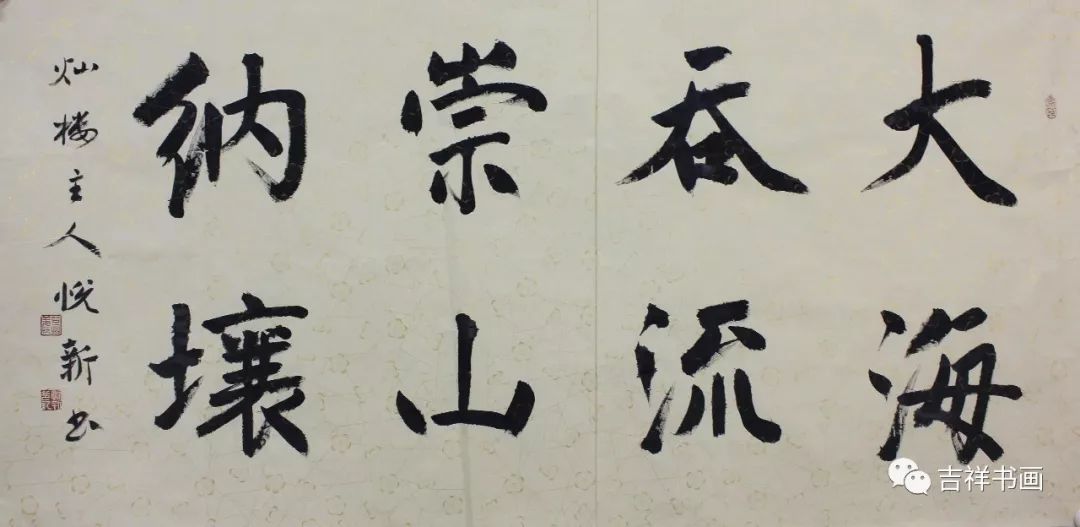 大海
吞流
崇山
纳壤
灿楼主人悦新书
吉祥书画